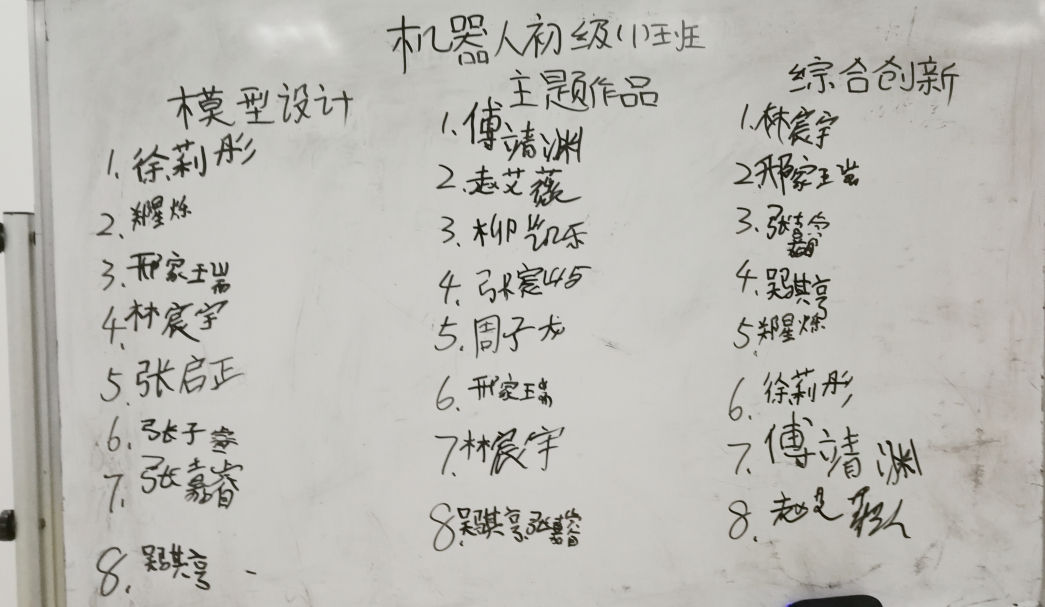 机器人初级小班
模型设计
1.徐莉彤
2.郑星烁
3.邢家瑞
4.林宸宇
5.张启正
6.张子
7.张嘉睿
8.吴骐亨
主题作品
1.傅靖渊
2.赵艾薇
3.柳凯乐
4.张宽
5.周子龙
6.邢家瑞
7.林宸宇
8.吴骐亨张嘉睿
综合创新
1.林宸宇
2.邢家瑞
3.张嘉睿
4.吴骐亨
5.郑星烁
6.徐莉彤
7.傅靖渊
8.赵艾薇